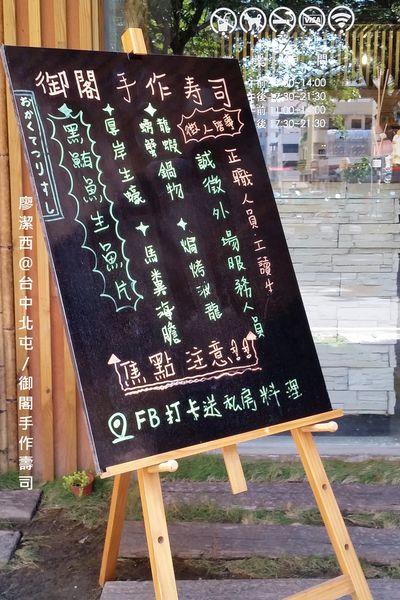 御閣手作寿司
おかくてつりすし
黑鮪魚生魚片
厚岸生蠔
螃蟹
龍蝦鍋物
馬糞海膽
焗烤波龍
徵人啓事
誠徵外場服務人員
正職人員.工讀生
焦點 注意
FB打卡送私房料理
VISA
14:00
17:30-21:30
14:00
17:30-21:30
廖潔西@台中北屯/御閣手作壽司